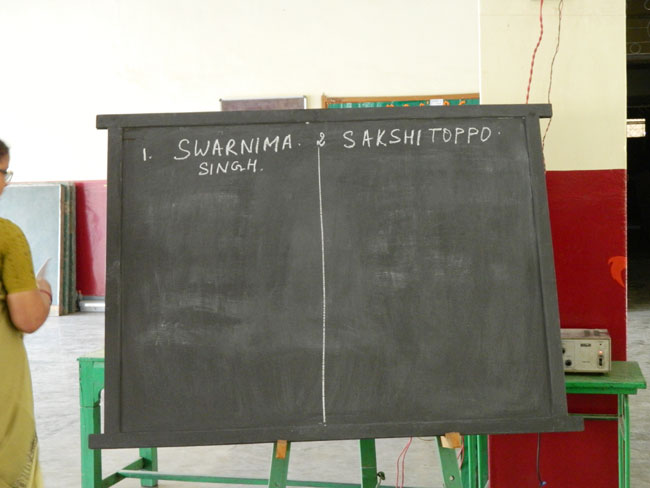 1. SWARNIMA.
SINGH.
2 SAKSHI TOPPO.